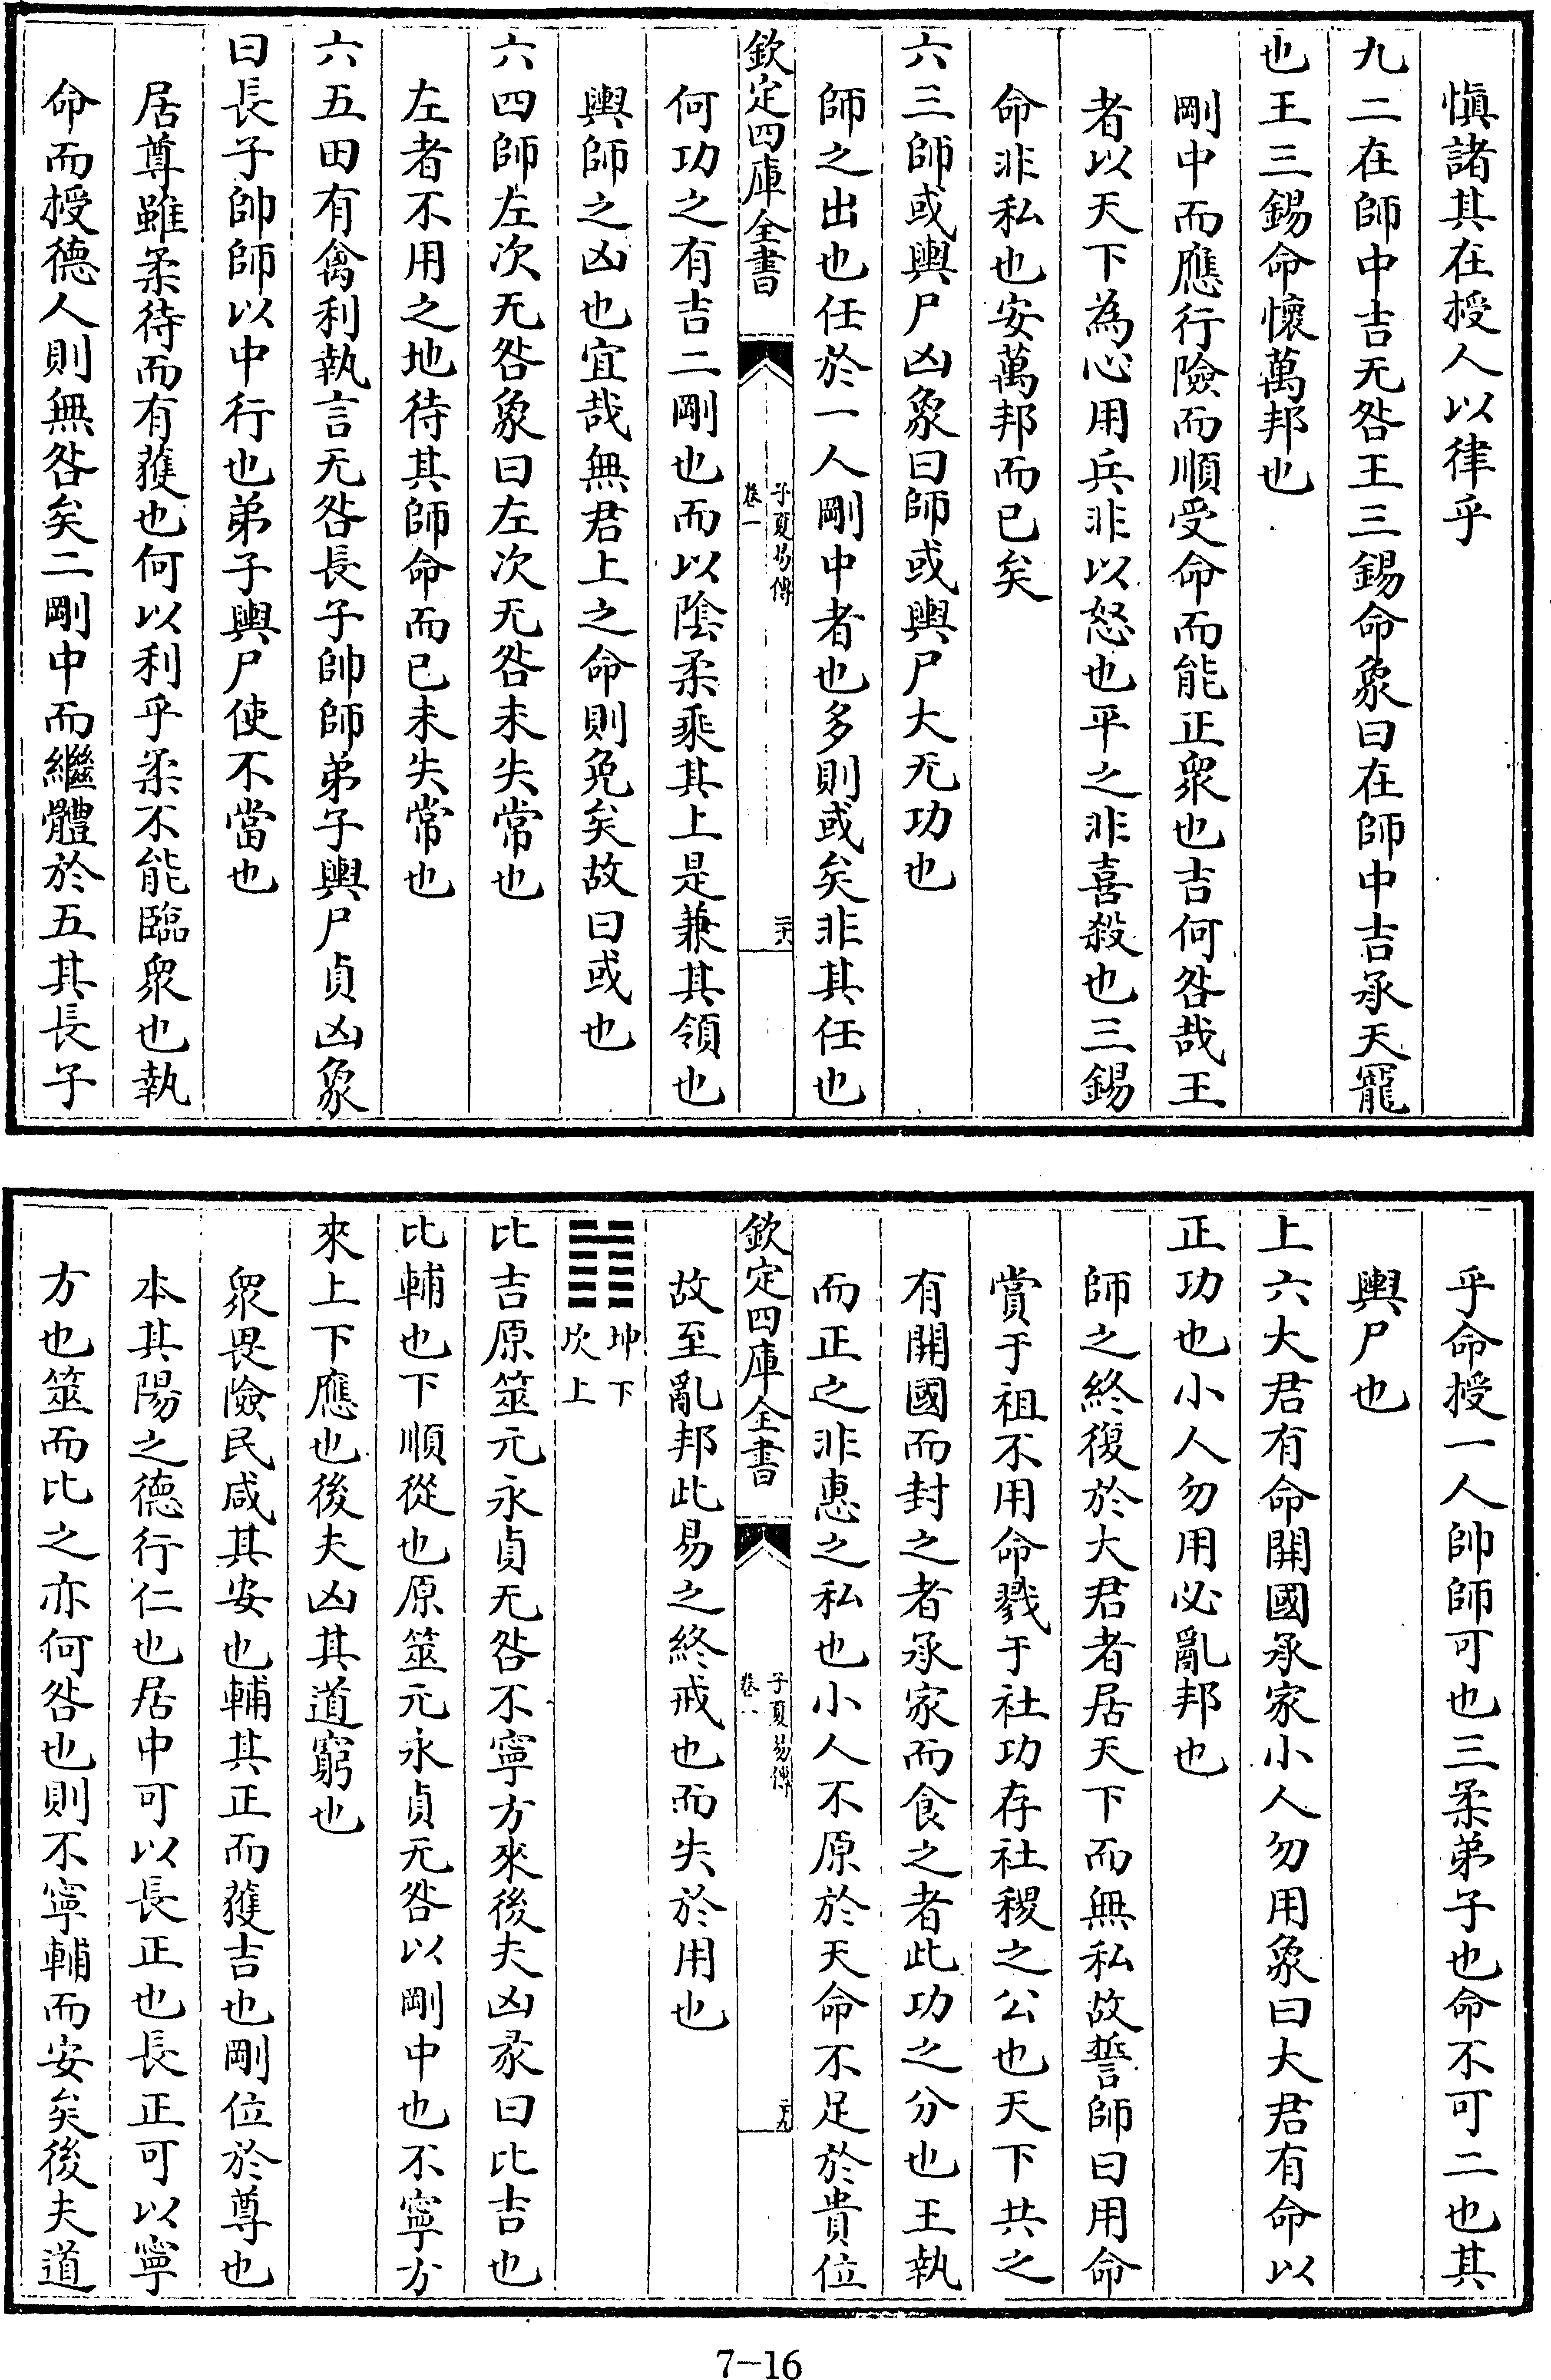 慎諸其在授人以律乎
九二在師中吉无咎王三錫命象曰在師中吉承天寵
也王三錫命懷萬邦也
剛中而應行險而順受命而能正衆也吉何咎哉王
者以天下為心用兵非以怒也平之非喜殺也三錫
命非私也安萬邦而已矣
六三師或輿尸凶象曰師或輿尸大无功也
師之出也任於一人剛中者也多則或矣非其任也
欽定四庫全書
子夏易傳
卷一
二十八
何功之有吉二剛也而以陰柔乘其上是兼其領也
輿師之凶也宜哉無君上之命則免矣故曰或也
六四師左次无咎象曰左次无咎未失常也
左者不用之地待其師命而已未失常也
六五田有禽利執言无咎長子帥師弟子輿尸貞凶象
曰長子帥師以中行也弟子輿尸使不當也
居尊雖柔待而有獲也何以利乎柔不能臨衆也執
命而授德人則無咎矣二剛中而繼體於五其長子
乎命授一人帥師可也三柔弟子也命不可二也其
輿尸也
上六大君有命開國承家小人勿用象曰大君有命以
正功也小人勿用必亂邦也
師之終復於大君者居天下而無私故誓師曰用命
賞于祖不用命戮于社功存社稷之公也天下共之
有開國而封之者承家而食之者此功之分也王執
而正之非惠之私也小人不原於天命不足於貴位
欽定四庫全書
子夏易傳
卷一
二十九
故至亂邦此易之終戒也而失於用也
䷇
坤下
坎上
比吉原筮元永貞无咎不寧方來後夫凶彖曰比吉也
比輔也下順從也原筮元永貞无咎以剛中也不寧方
來上下應也後夫凶其道窮也
衆畏險民咸其安也輔其正而獲吉也剛位於尊也
本其陽之德行仁也居中可以長正也長正可以寧
方也筮而比之亦何咎也則不寧輔而安矣後夫道
7-16